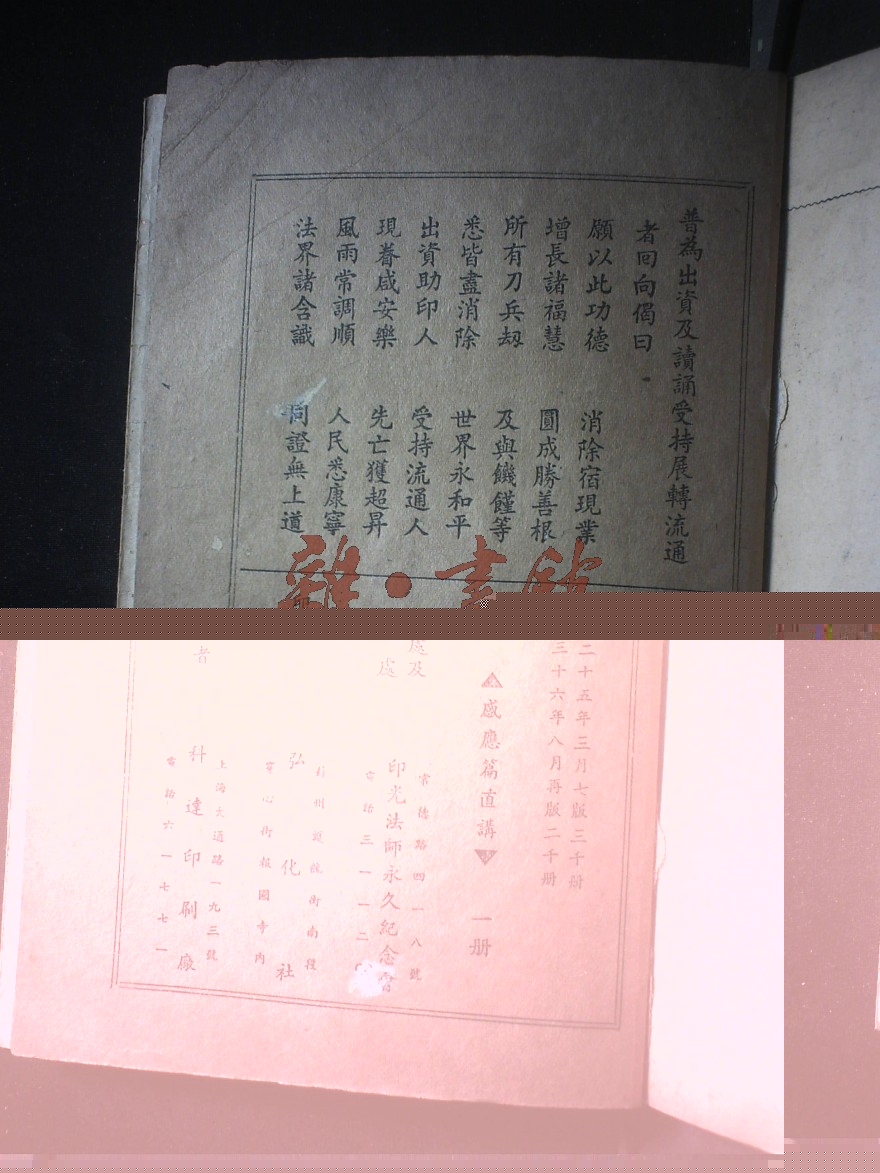 普為出資及讀誦受持展轉流通
者回向偈曰
願以此功德 消除宿現業
增長諸福慧 圓成勝善根
所有刀兵劫 及與饑饉等
悉皆盡消除 世界永和平
出資助印人 受持流通人
現眷咸安樂 先亡獲超昇
風雨常調順 人民悉康寧
法界諸含識 同證無上道
雜·書館
二十五年三月七版三千册
三十六年八月再版二千册
感應篇直講 一册
處及
處
常德路四一八號
印光法師永久紀念會
電話三一一二
蘇州護龍街南段
弘化社
穿心街報國寺內
者
上海大通路一九三號
科達印刷廠
電話六一七七一